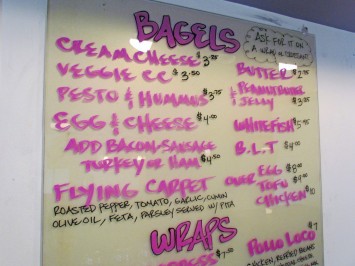 BAGELS
ASK FOR IT ON
A WRAP OR CROISSANT
CREAM CHEESE $3.25
VEGGIE CC $3.50
PESTO & HUMMUS $3.75
EGG & CHEESE $4.00
ADD BACON, SAUSAGE
TURKEY OR HAM $4.50
BUTTER $2.75
PEANUT BUTTER
& JELLY $3.25
WHITEFISH $5.95
B.L.T $4.00
FLYING CARPET
ROASTED PEPPER, TOMATO, GARLIC, CUMIN
OLIVE OIL, FETA, PARSLEY SERVED W/ PITA
OVER EGG $8.00
TOFU $9.00
CHICKEN $10
WRAPS
$7.00
POLLO LOCO $7
CHICKEN, REFRIED BEANS